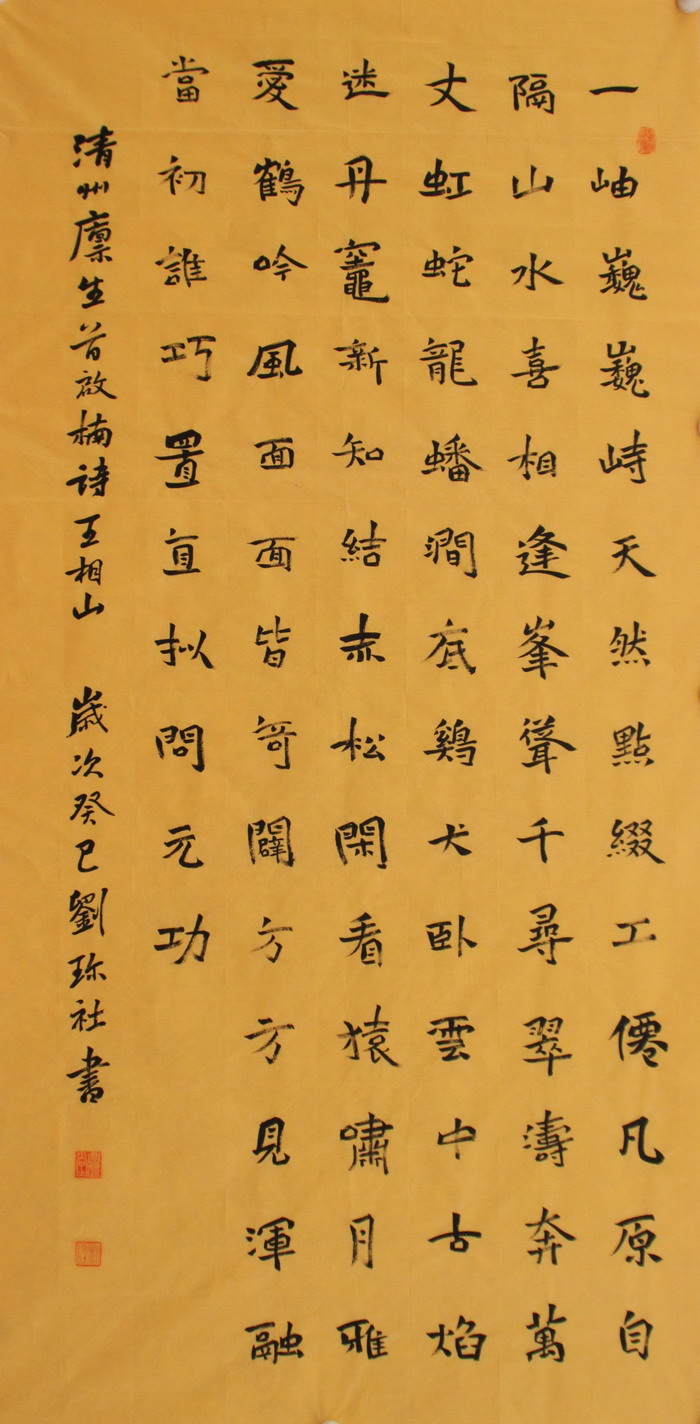 一岫巍巍峙天然點綴工僊凡原自
隔山水喜相逢峯聳千尋翠濤奔萬
丈虹蛇龍蟠澗底鷄犬卧雲中古焰
迷丹竈新知結赤松閑看猿嘯月雅
愛鶴吟風面面皆奇闢方方見渾融
當初誰巧置直拟問元功
清州廪生首啟楠詩王相山 歲次癸巳劉珎社書